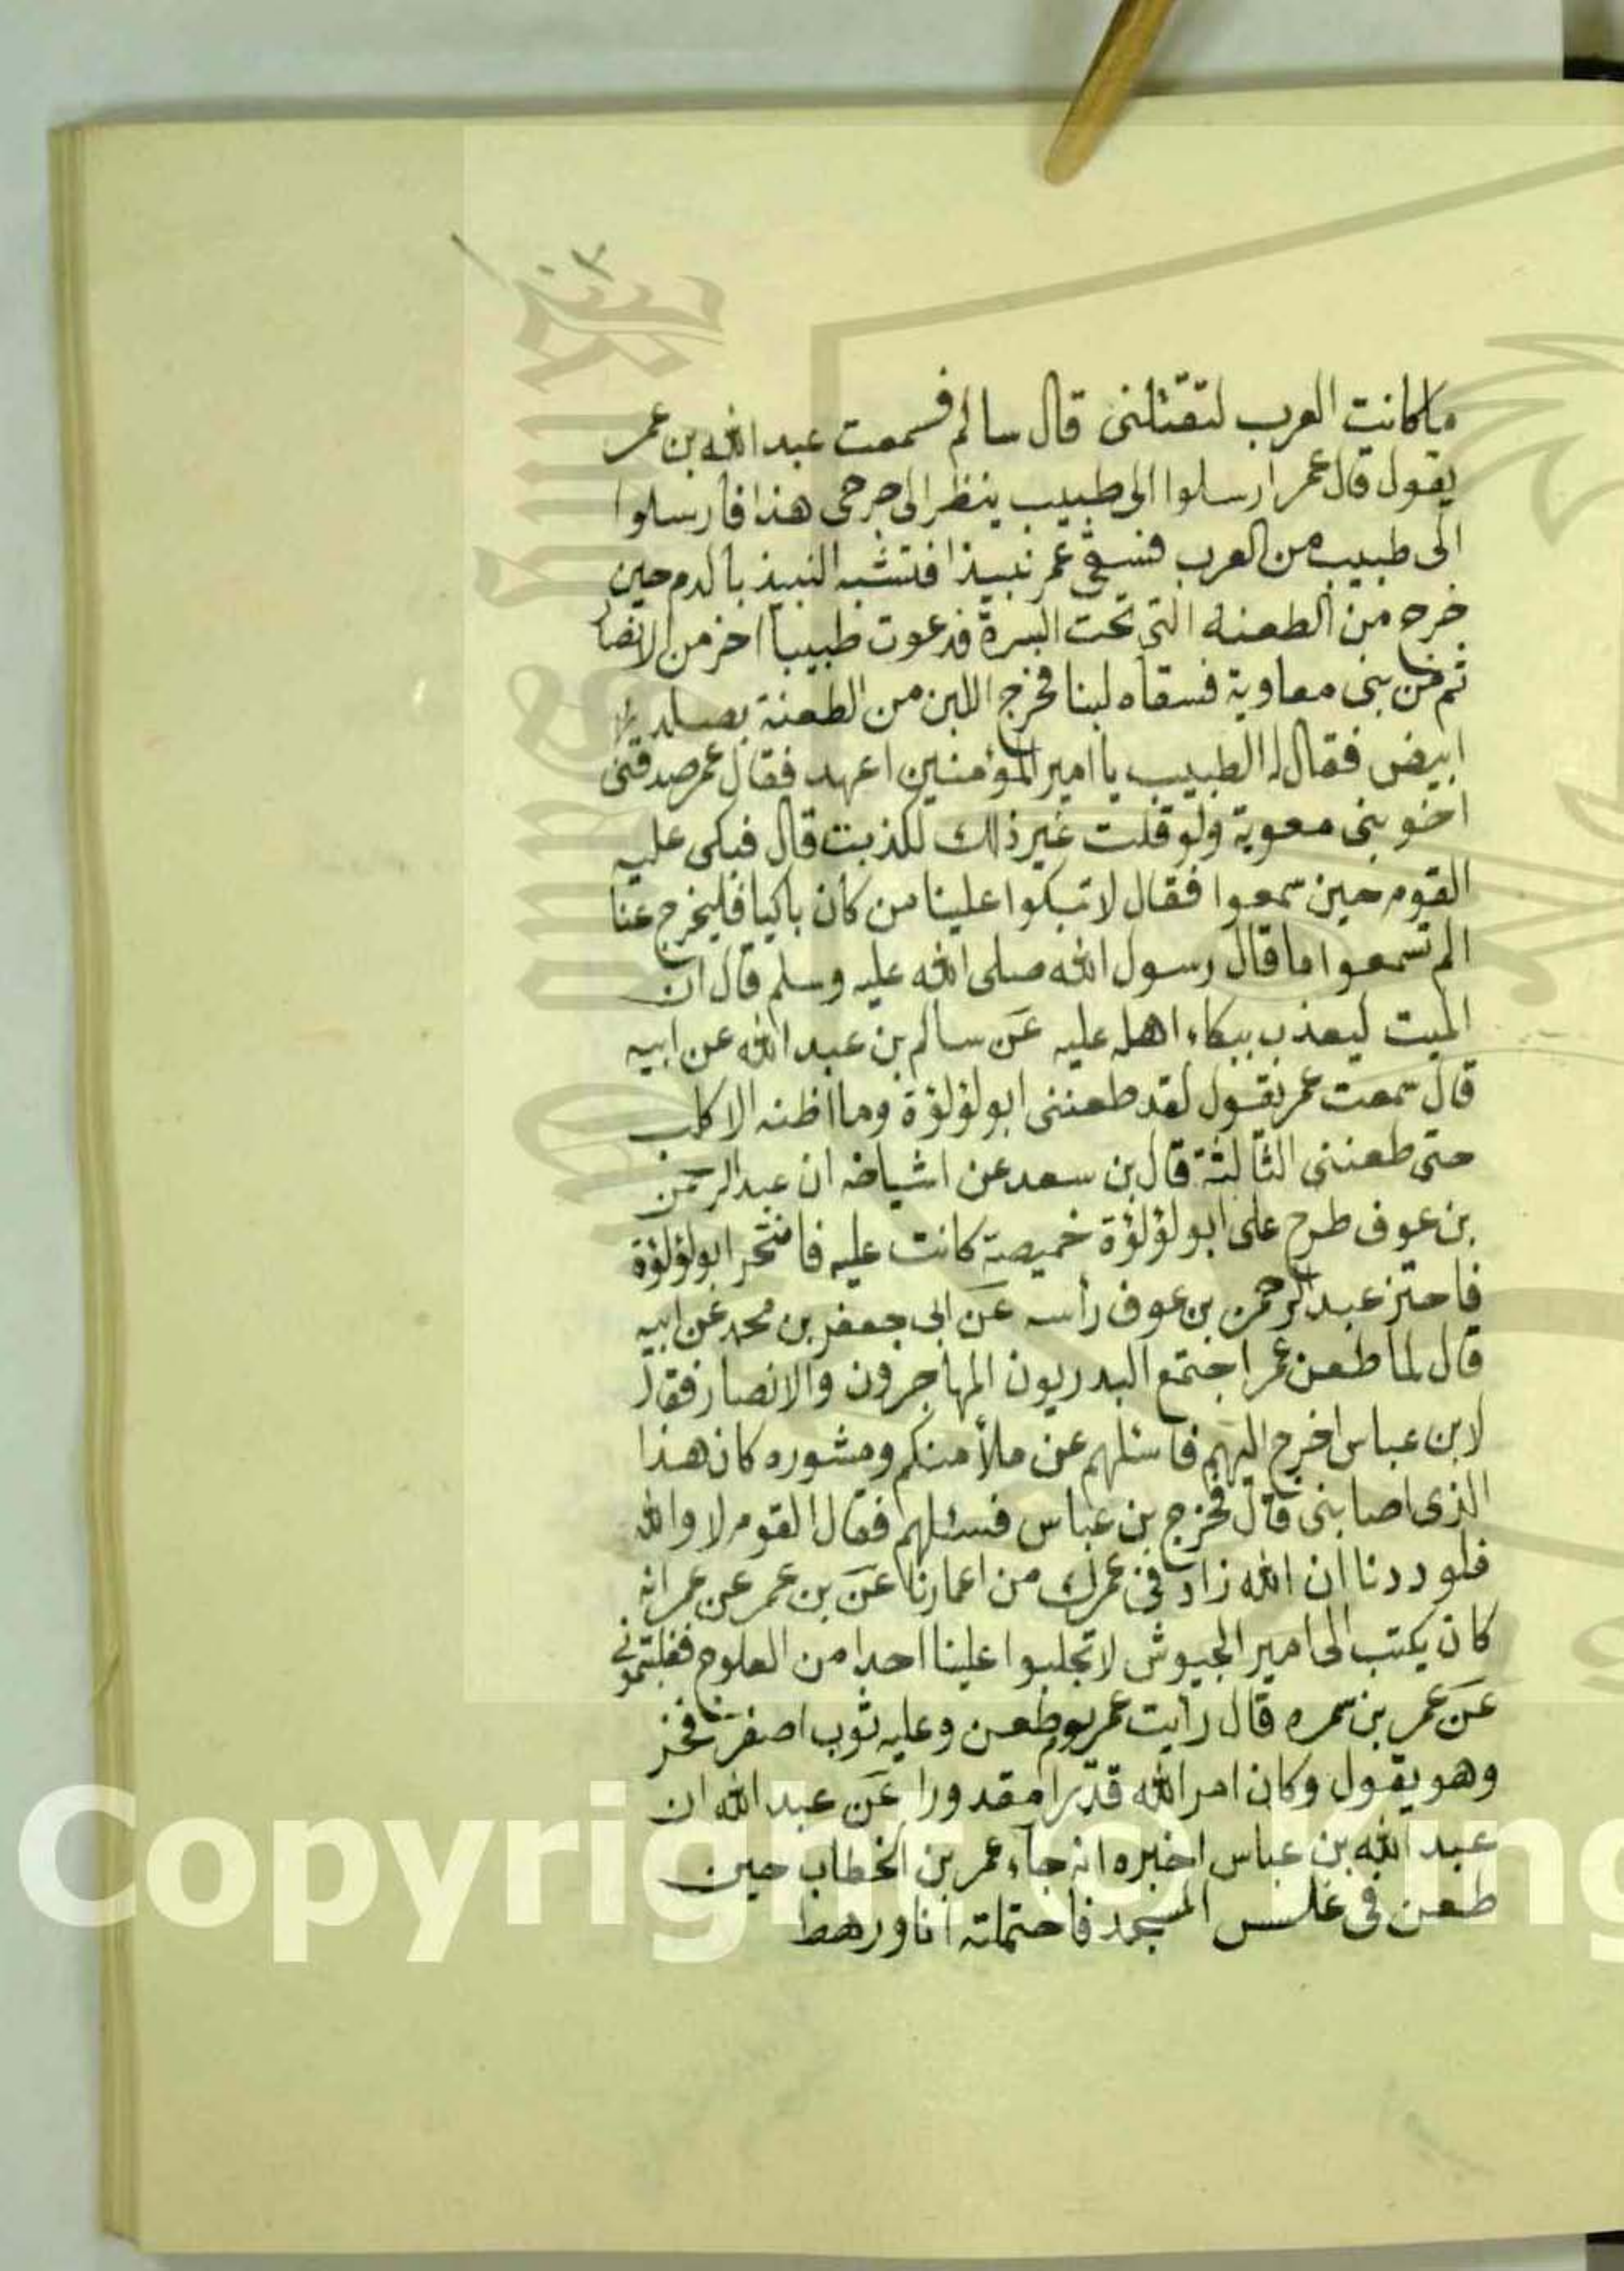 ما كانت العرب لتقتلنى قال سالم فسمعت عبد الله بن عمر
يقول قال عمر ارسلوا الى طبيب ينظر الى جرحى هذا فارسلوا
الى طبيب من العرب فسقى عمر نبيذا فتشبه النبيذ بالدم حين
خرج من الطعنه التى تحت السرة فدعوت طبيبا اخر من الانصا
ثم من بنى معاوية فسقاه لبنا فخرج اللبن من الطعنة يصلد
ابيض فقال له الطبيب يا امير المؤمنين اعهد فقال عمر صدقنى
اخو بنى معوية ولو قلت غير ذلك لكذبت قال فبكى عليه
القوم حين سمعوا فقال لا تبكوا علينا من كان باكيا فليخرج عنا
الم تسمعوا ما قال رسول الله صلى الله عليه وسلم قال ان
الميت ليعذب ببكاء اهله عليه عن سالم بن عبد الله عن ابيه
قال سمعت عمر يقول لقد طعننى ابو لؤلؤة وما اظنه الا كلب
حتى طعننى الثالثة قال بن سعد عن اشياخه ان عبد الرحمن
بن عوف طرح على ابو لؤلؤة خميصة كانت عليه فانتحر ابو لؤلؤة
فاحتز عبد الرحمن بن عوف رأسه عن ابى جعفر بن محمد عن ابيه
قال لما طعن عمر اجتمع البدريون المهاجرون والانصار فقال
لابن عباس اخرج اليهم فاسئلهم عن ملأ منكم ومشوره كان هذا
الذى اصابنى قال فخرج بن عباس فسئلهم فقال القوم لا والله
فلوددنا ان الله زاد فى عمرك من اعمارنا عن بن عمر عن عمر انه
كان يكتب الى امير الجيوش لا تجلبوا علينا احدا من العلوج
عن عمر بن سمره قال رايت عمر يوم طعن وعليه ثوب اصفر فخر
وهو يقول وكان امر الله قدرا مقدورا عن عبد الله ان
عبد الله بن عباس اخبره انه جاء عمر بن الخطاب حين
طعن فى غلس المسجد فاحتملته انا ورهط
Copyright © King